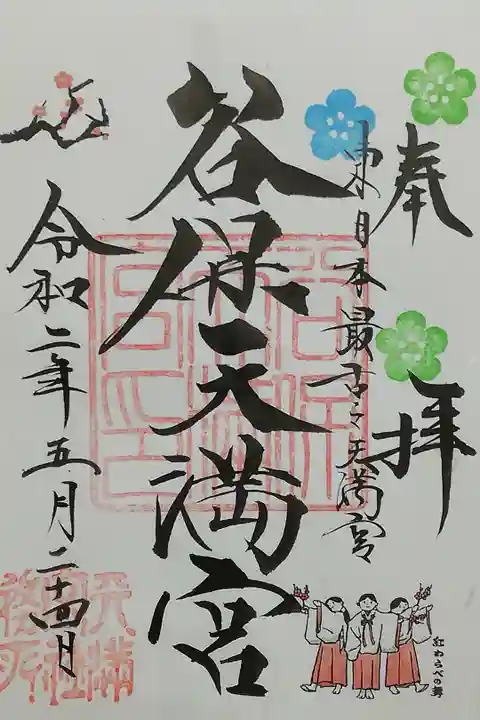 奉拝
東日本最古之天満宮
谷保天満宮
令和二年五月二十四日
紅わらべの舞